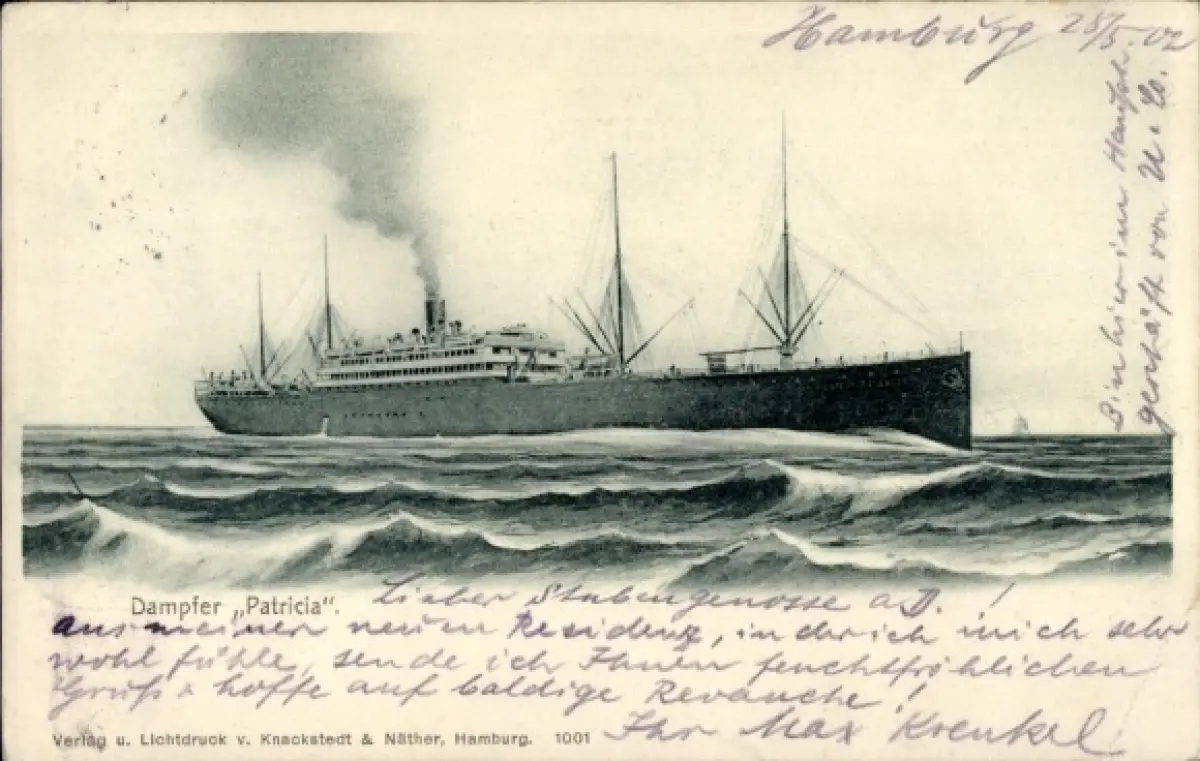 Hamburg 28/5. 02
Dampfer „Patricia".
Lieber Stubengenosse a.D. !
Aus meiner neuen Residenz, in der ich mich sehr
wohl fühle, sende ich Ihnen feuchtfröhlichen
Gruß & hoffe auf baldige Revanche !
Ihr Max Krenkel
Verlag u. Lichtdruck v. Knackstedt & Näther, Hamburg. 1001
Bin hier im
geschäft von